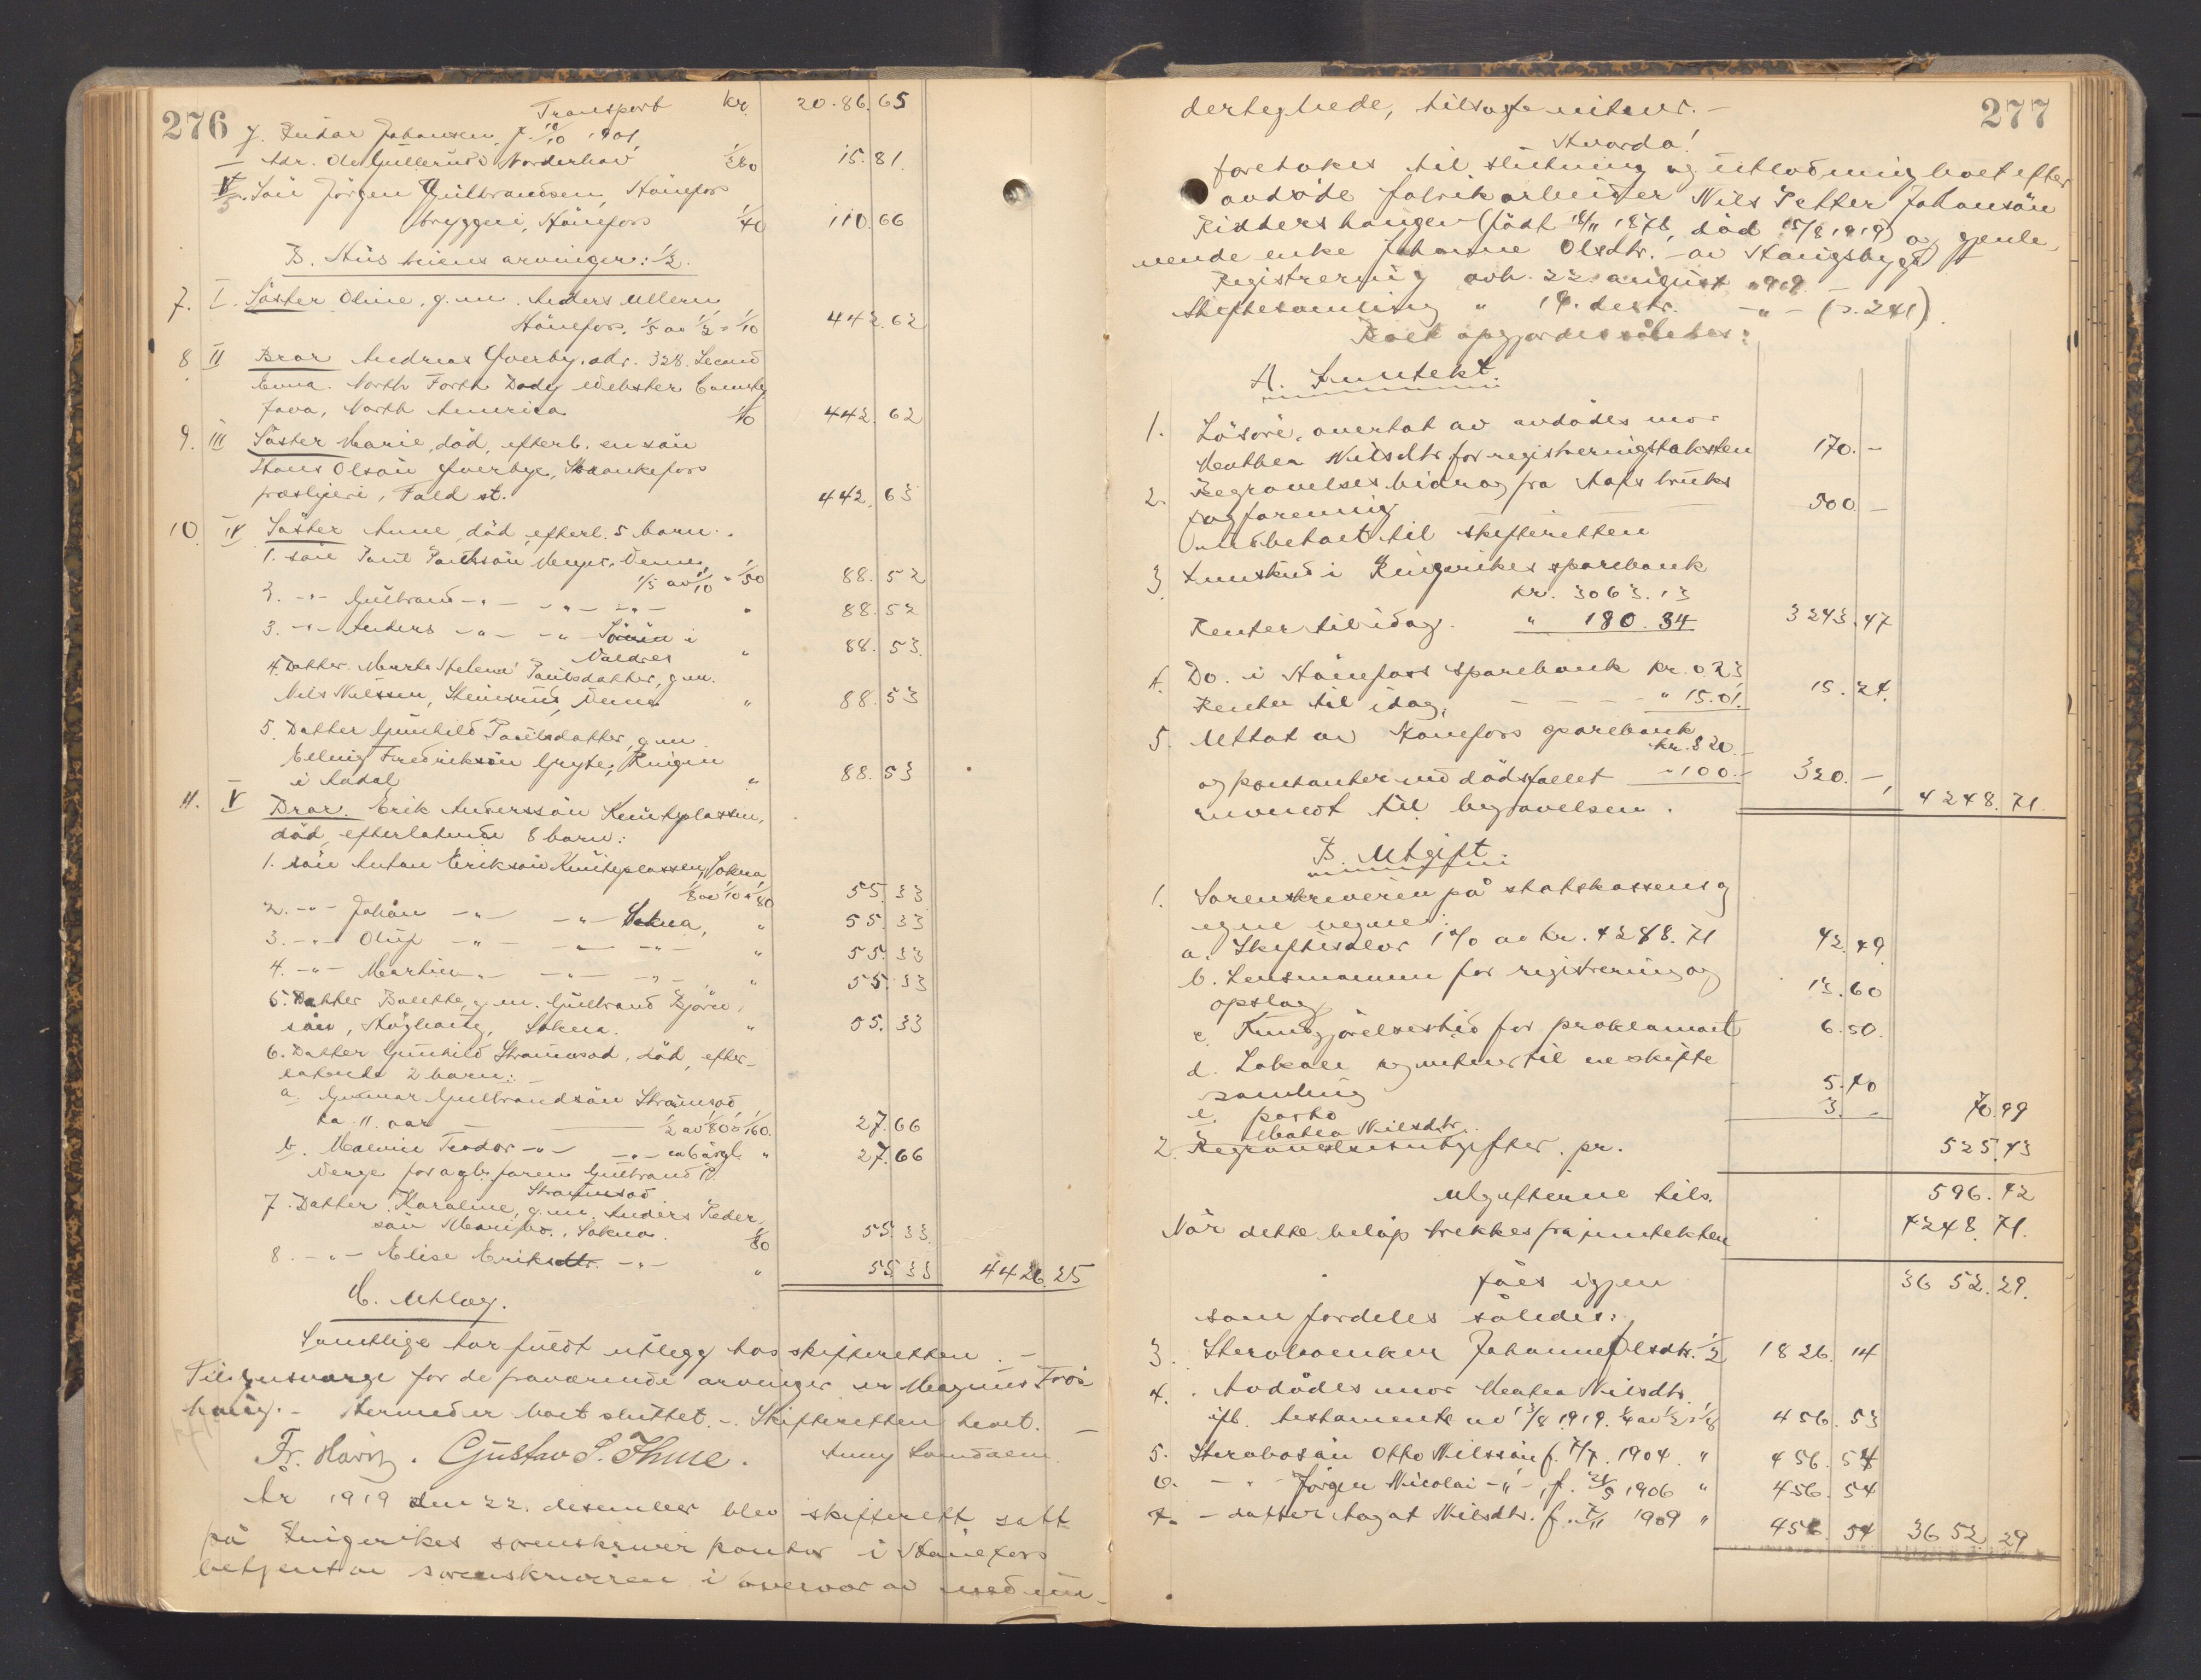 276
Transport kr. 20.86.65
f. Einar Johansen, f. 10/10 1901,
Adr. Ole Gullerud, Norderhov 1/280 15.81.
V. Søn Jörgen Gulbrandsen, Hönefos
bryggeri, Hönefos 1/40 110.66
B. Hustruens arvinger: 1/2.
7. I. Söster Oline, g.m. Anders Ullern
Hönefos. 1/5 av 1/2 = 1/10 442.62
8 II Bror Andreas Överby, adr. 328. Second
North Dody Webster County
Iova, North America 1/10 442.62
9. III Söster Marie, död, efterl. en sön
Hans Olsön Överbye, Skankefos
træsliperi, Fald st. 442.63
10. IV Söster Anne, död, efterl. 5 barn.
1. sön Paul Paulsön Meyer, Viken,
1/5 av 1/10 = 1/50 88.52
2. -"- Gulbrand -"- -"- -"- " 88.52
3. -"- Anders -"- -"- i
Valdres " 88.53
4. Datter Marte Helene Paulsdatter, g.m.
Nils Nilssen, Steinsrud, Viken " 88.53
5. Datter Gunhild Paulsdatter, g.m.
Elling Fredriksön Gryte, Ringen
i Aadal " 88.53
11. V Bror. Erik Anderssön Knuteplassen,
död, efterlatende 8 barn:
1. sön Anton Eriksön Knuteplassen, Sokna
1/8 av 1/10 = 1/80 55.33
2. -"- Johan -"- -"- Sokna, " 55.33
3. -"- Oluf -"- -"- -"- " 55.33
4. -"- Martin -"- -"- -"- " 55.33
5. Datter Bolette, g.m. Gulbrand Björn-
sön, Höghaug, Sokna. " 55.33
6. Datter Gunhild Strömsod, död, efter-
latende 2 barn:
a. Gunnar Gulbrandsön Strömsod
ca. 11 aar 1/2 av 1/80 = 1/160. 27.66
b. Teodor -"- -"- ca 6 årgl. " 27.66
Verge for farens Gulbrand P.
Strömsod
7. Datter Karoline, g.m. Anders Peder-
sön , Sokna. 1/80 55.33.
8. -"- Elise Eriksdtr. -"- " 55.33 4426.25
C. Utlæg.
Samtlige har fuldt utlegg hos skifteretten. -
Tilsynsverge for de fraværende arvinger er Magnus Frös-
haug. - Hermed er boet sluttet. - Skifteretten hevet. -
Fr. Haritz. Gustav S. Ihme. Anny Lundalen
Ar 1919 den 22. desember blev skifterett satt
på Ringerikes sorenskriverkontor i Hönefos
betjent av sorenskriveren i overvær av med un-
277
dertegnede, tilsagte vitner. -
Hvorda!
foretokes til slutning og utlodning boet efter
avdöde fabrikarbeider Nils Petter Johansön
Riddershaugen (född 18/11 1876, död 15/8 1919) og gjenle-
vende enke Johanne Olsdtr. av Haugsbygd
Registrering avh. 22 august 1919. -
Skiftesamling " 19. desbr. -"- (s. 241).
Boet opgjordes således:
A. Inntekt.
1. Lösöre, overtat av avdödes mor
Mathea Nilsdtr for registreringstaksten 170.-
2. Begravelsesbidrag fra Hofs bruks
fagforening 500.-
innbetalt til skifteretten
3. Innskud i Ringerikes sparebank
kr. 3063.13
Renter til idag. " 180.34 3243.47
4. Do. i Hönefoss sparebank kr. 0.23
Renter til idag, - - - " 15.01. 15.24.
5. Uttat av Hönefoss sparebank
kr. 220.-
og kontanter ved dödsfallet " 100.- 320.-,
anvendt til begravelsen. 4248.71.
B. Utgift.
1. Sorenskriveren på statskassens og
egne vegne:
a. Skiftesalær 1% av kr. 4248.71 42.49
b. Lensmannen for registrering og
opslag 13.60
c. Kundgjörelsestid for proklamaet 6.50.
d. Lokale og vitner til en skifte
samling 5.40
e. porto 3.- 70.99
2. Begravelsesutgifter pr. Mathea Nilsdtr. 525.43
Utgifterne tils. 596.42
Når dette belöp trekkes fra inntekten 4248.71.
fåes igjen 3652.29.
som fordeles således:
3. Stervboenken Johanne Olsdtr. 1/2 1826.14
4. Avdödes mor Mathea Nilsdtr.
ifl. testamente av 13/8 1919. 1/4 av 1/2 = 1/8 456.53
5. Stervbosön Otto Nilssön f. 7/7. 1904. " 456.54
6. -"- Jörgen Nicolai -"-, f. 21/5 1906 " 456.54
7. - datter Aagot Nilsdtr. f. 7/11 1909 " 456.54 3652.29